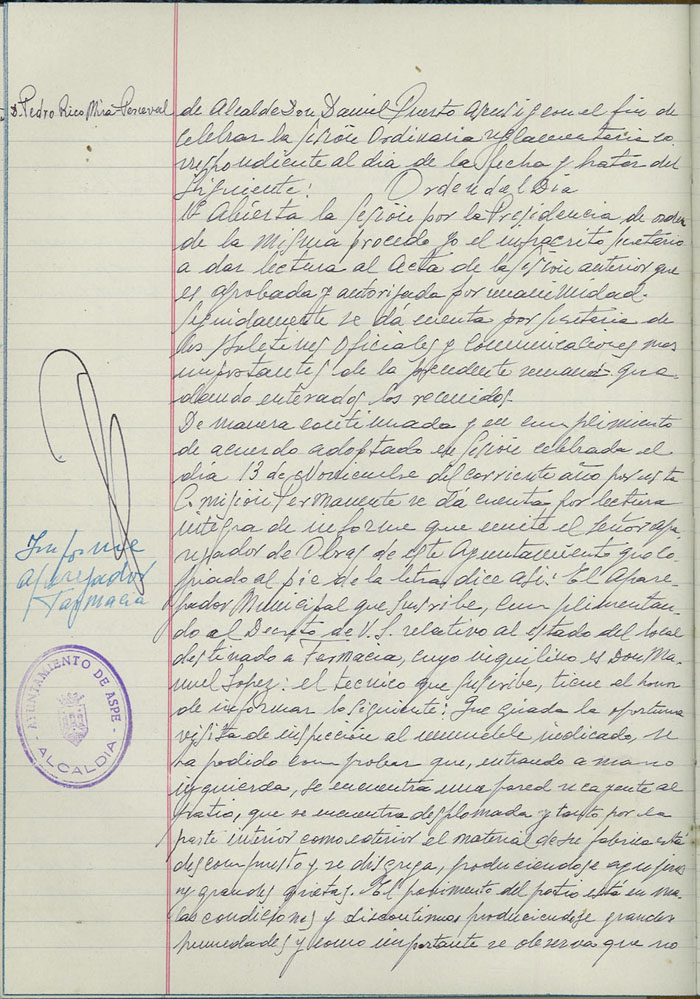 D. Pedro Rico Mira-Perceval
de Alcalde Don Daniel Puerto Asensi y con el fin de
celebrar la sesión Ordinaria reglamentaria co
rrespondiente al dia de la fecha y tratar del
siguiente: Orden del Dia
1º Abierta la sesión por la Presidencia, de orden
de la misma procedo yo el infrascrito secretario
a dar lectura al Acta de la sesión anterior que
es aprobada y autorizada por unanimidad.
Seguidamente se dá cuenta por secretaria de
los Boletines Oficiales y Comunicaciones mas
importantes de la precedente semana que
dando enterados los reunidos.
De manera continuada y en cumplimiento
de acuerdo adoptado en sesión celebrada el
dia 13 de Noviembre del corriente año por esta
Comisión Permanente se dá cuenta por lectura
integra de informe que emite el señor apa
rejador de Obras de este Ayuntamiento que co
piado al pie de la letra dice asi: El Apare-
jador Municipal que suscribe, cumplimentan
do el Decreto de V.S. relativo al estado del local
destinado a Farmacia, cuyo inquilino es Don Ma
nuel Lopez: el tecnico que suscribe, tiene el honor
de informar lo siguiente: Que girada la oportuna
visita de inspección al inmueble indicado, se
ha podido comprobar que, entrando a mano
izquierda, se encuentra una pared recayente al
patio, que se encuentra desplomada y tanto por la
parte interior como exterior el material de su fabrica está
descompuesto y se disgrega, produciendose agujeros
y grandes grietas. El pavimento del patio está en ma
las condiciones y discontinuo produciendose grandes
humedades y como importante se observa que no
Informe
aparejador
Farmacia
AYUNTAMIENTO DE ASPE
ALCALDIA